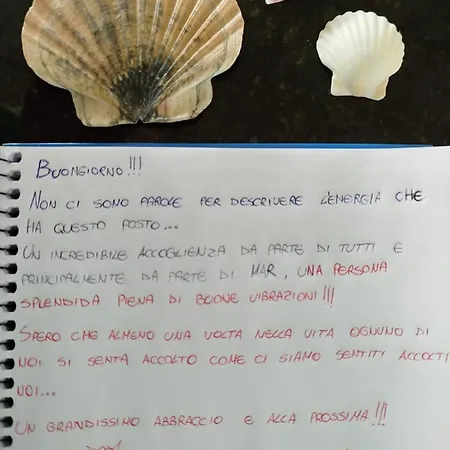 BUONGIORNO!!!
NON CI SONO PAROLE PER DESCRIVERE L'ENERGIA CHE
HA QUESTO POSTO...
UN INCREDIBILE ACCOGLIENZA DA PARTE DI TUTTI E
PRINCIPALMENTE DA PARTE DI MAR, UNA PERSONA
SPLENDIDA PIENA DI BUONE VIBRAZIONI!!!
SPERO CHE ALMENO UNA VOLTA NELLA VITA OGNUNO DI
NOI SI SENTA ACCOLTO COME CI SIAMO SENTITI ACCOLTI
NOI...
UN GRANDISSIMO ABBRACCIO E ALLA PROSSIMA!!!